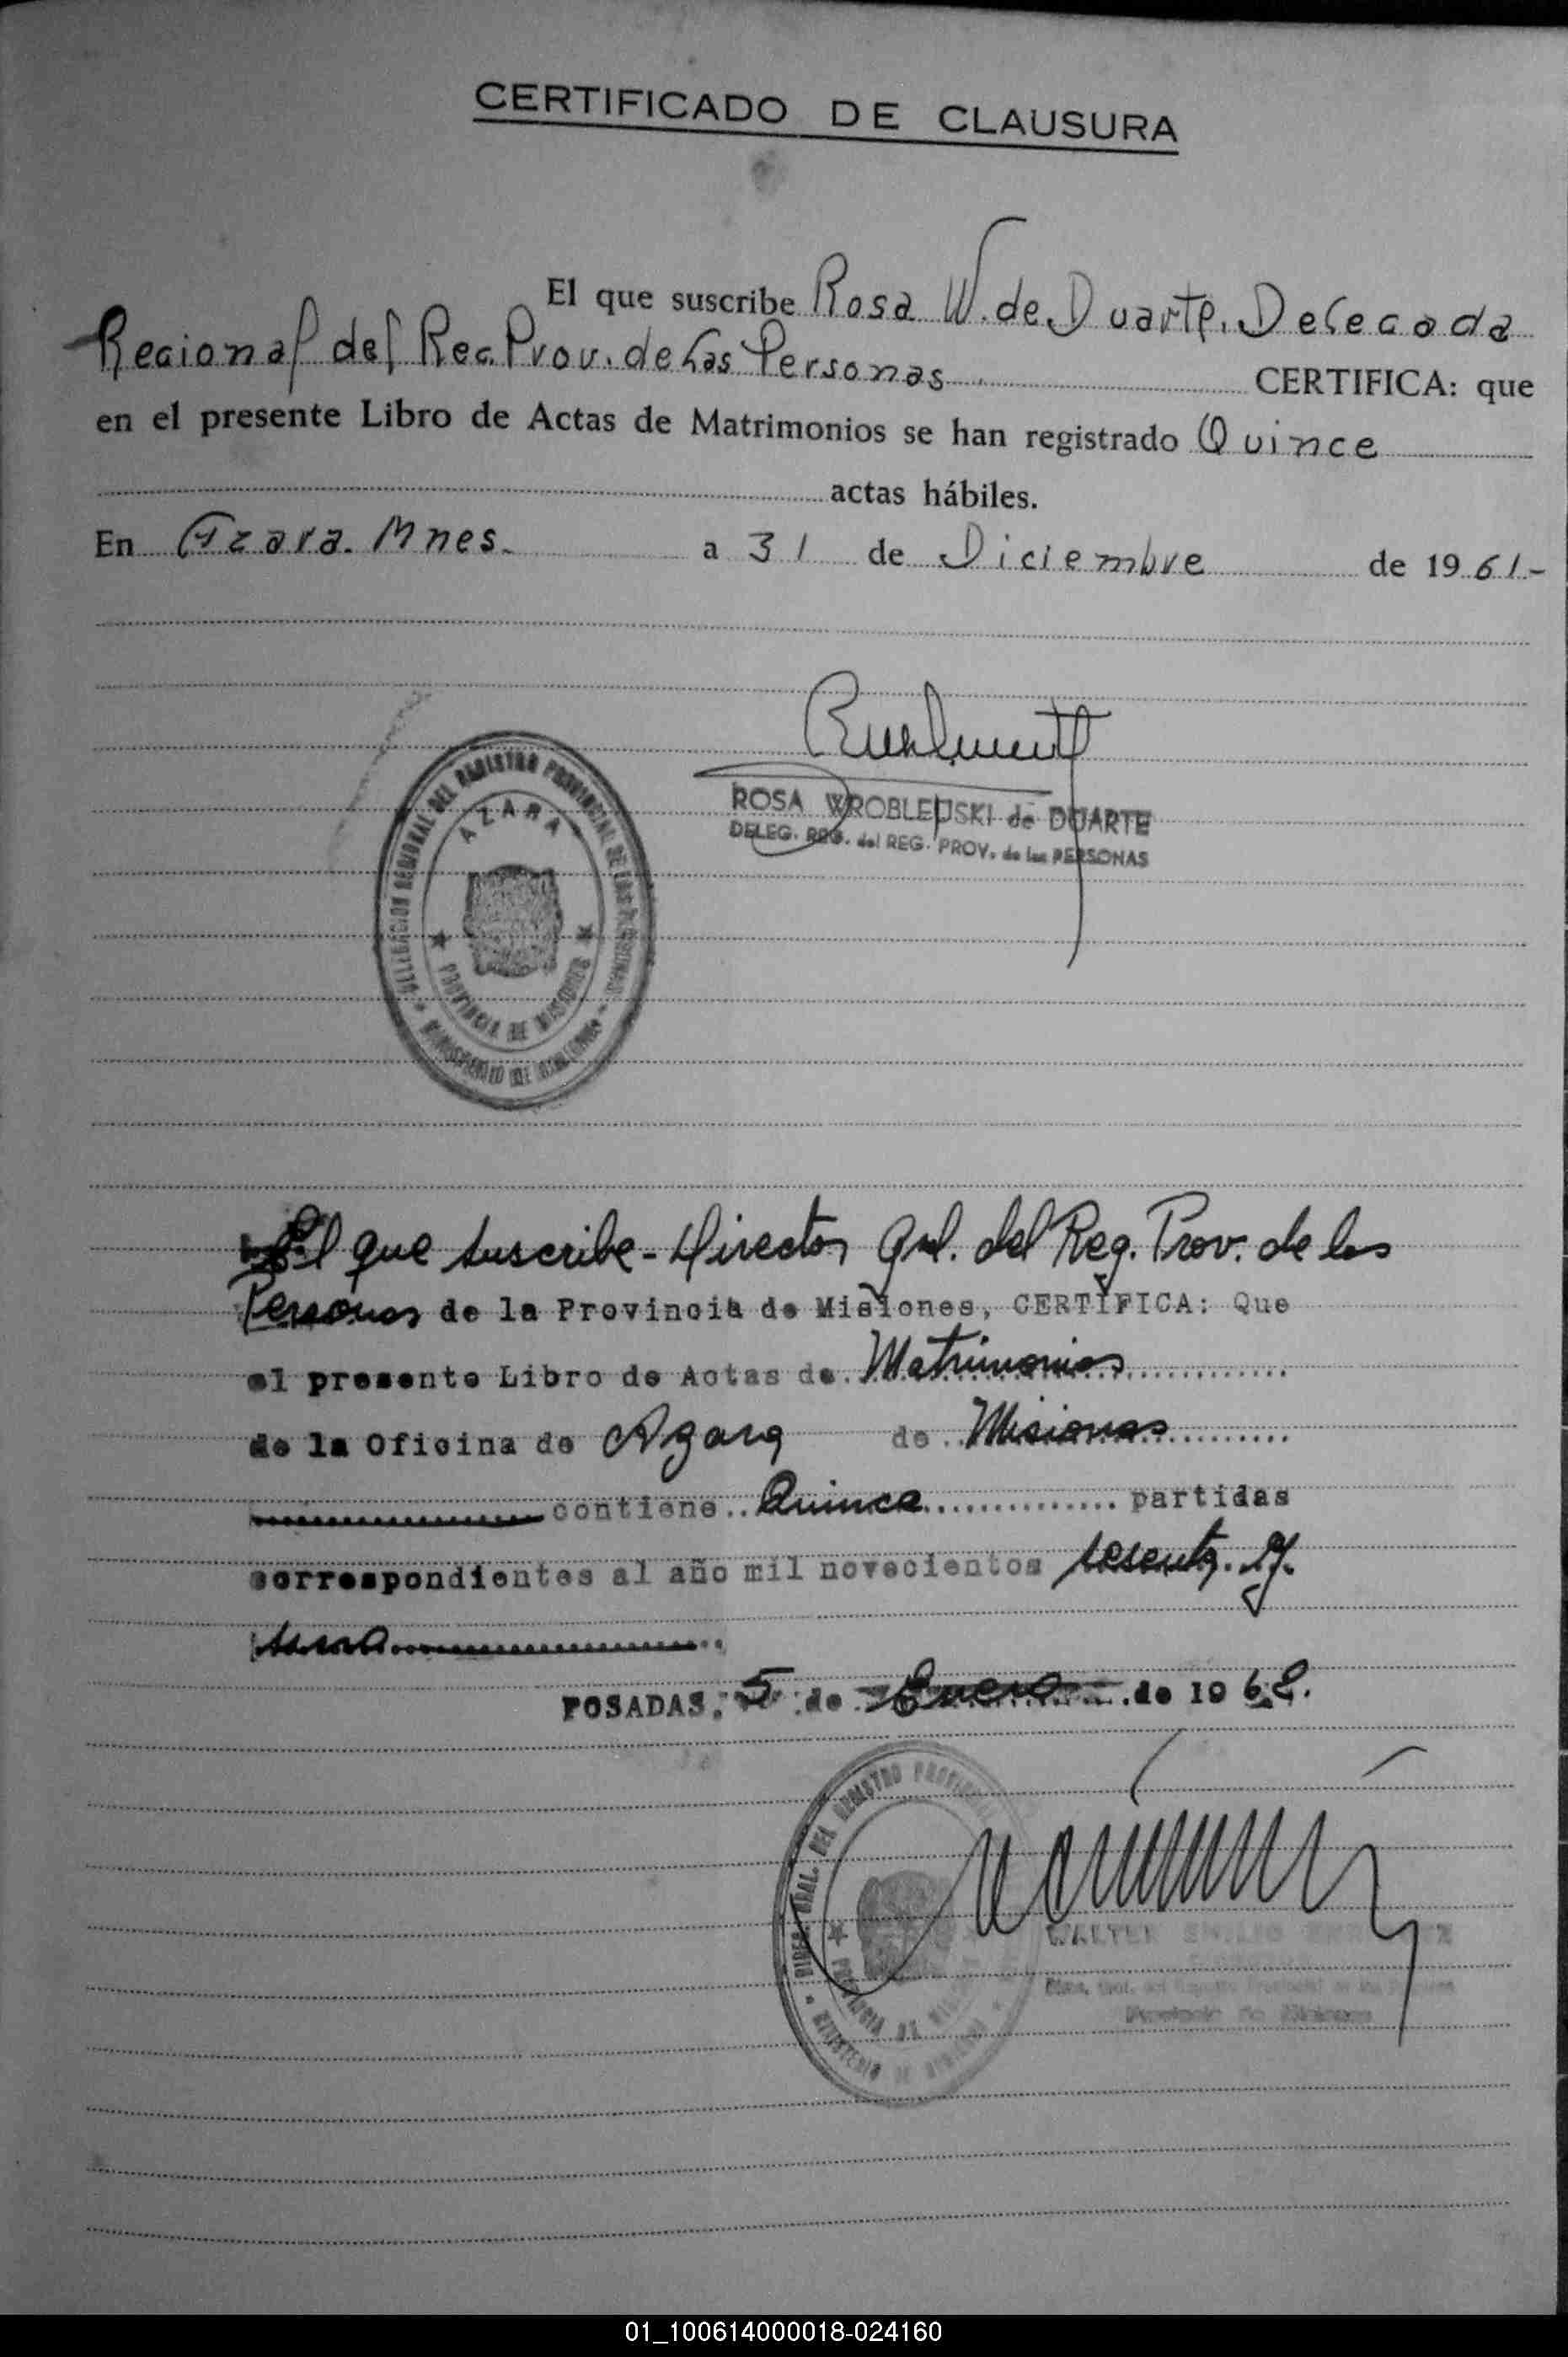 CERTIFICADO DE CLAUSURA
El que suscribe Rosa W. de Duarte. Delegada
Regional del Reg. Prov. de las Personas CERTIFICA: que
en el presente Libro de Actas de Matrimonios se han registrado Quince
actas hábiles.
En Azara. Mnes. a 31 de Diciembre de 1961.-
ROSA WROBLEUSKI de DUARTE
DELEG. REG. del REG. PROV. de las PERSONAS
DELEGACION REGIONAL DEL REGISTRO PROVINCIAL DE LAS PERSONAS
AZARA
PROVINCIA DE MISIONES
MINISTERIO DE GOBIERNO
El que suscribe - Director Gral. del Reg. Prov. de las
Personas de la Provincia de Misiones, CERTIFICA: Que
el presente Libro de Actas de Matrimonios
de la Oficina de Azara de Misiones
contiene Quince partidas
correspondientes al año mil novecientos sesenta y
uno
POSADAS, 5 de Enero de 1962.
DIREC. GRAL. DEL REGISTRO PROVINCIAL
PROVINCIA DE MISIONES
MINISTERIO DE GOBIERNO
WALTER EMILIO
Provincia de Misiones
01_100614000018-024160